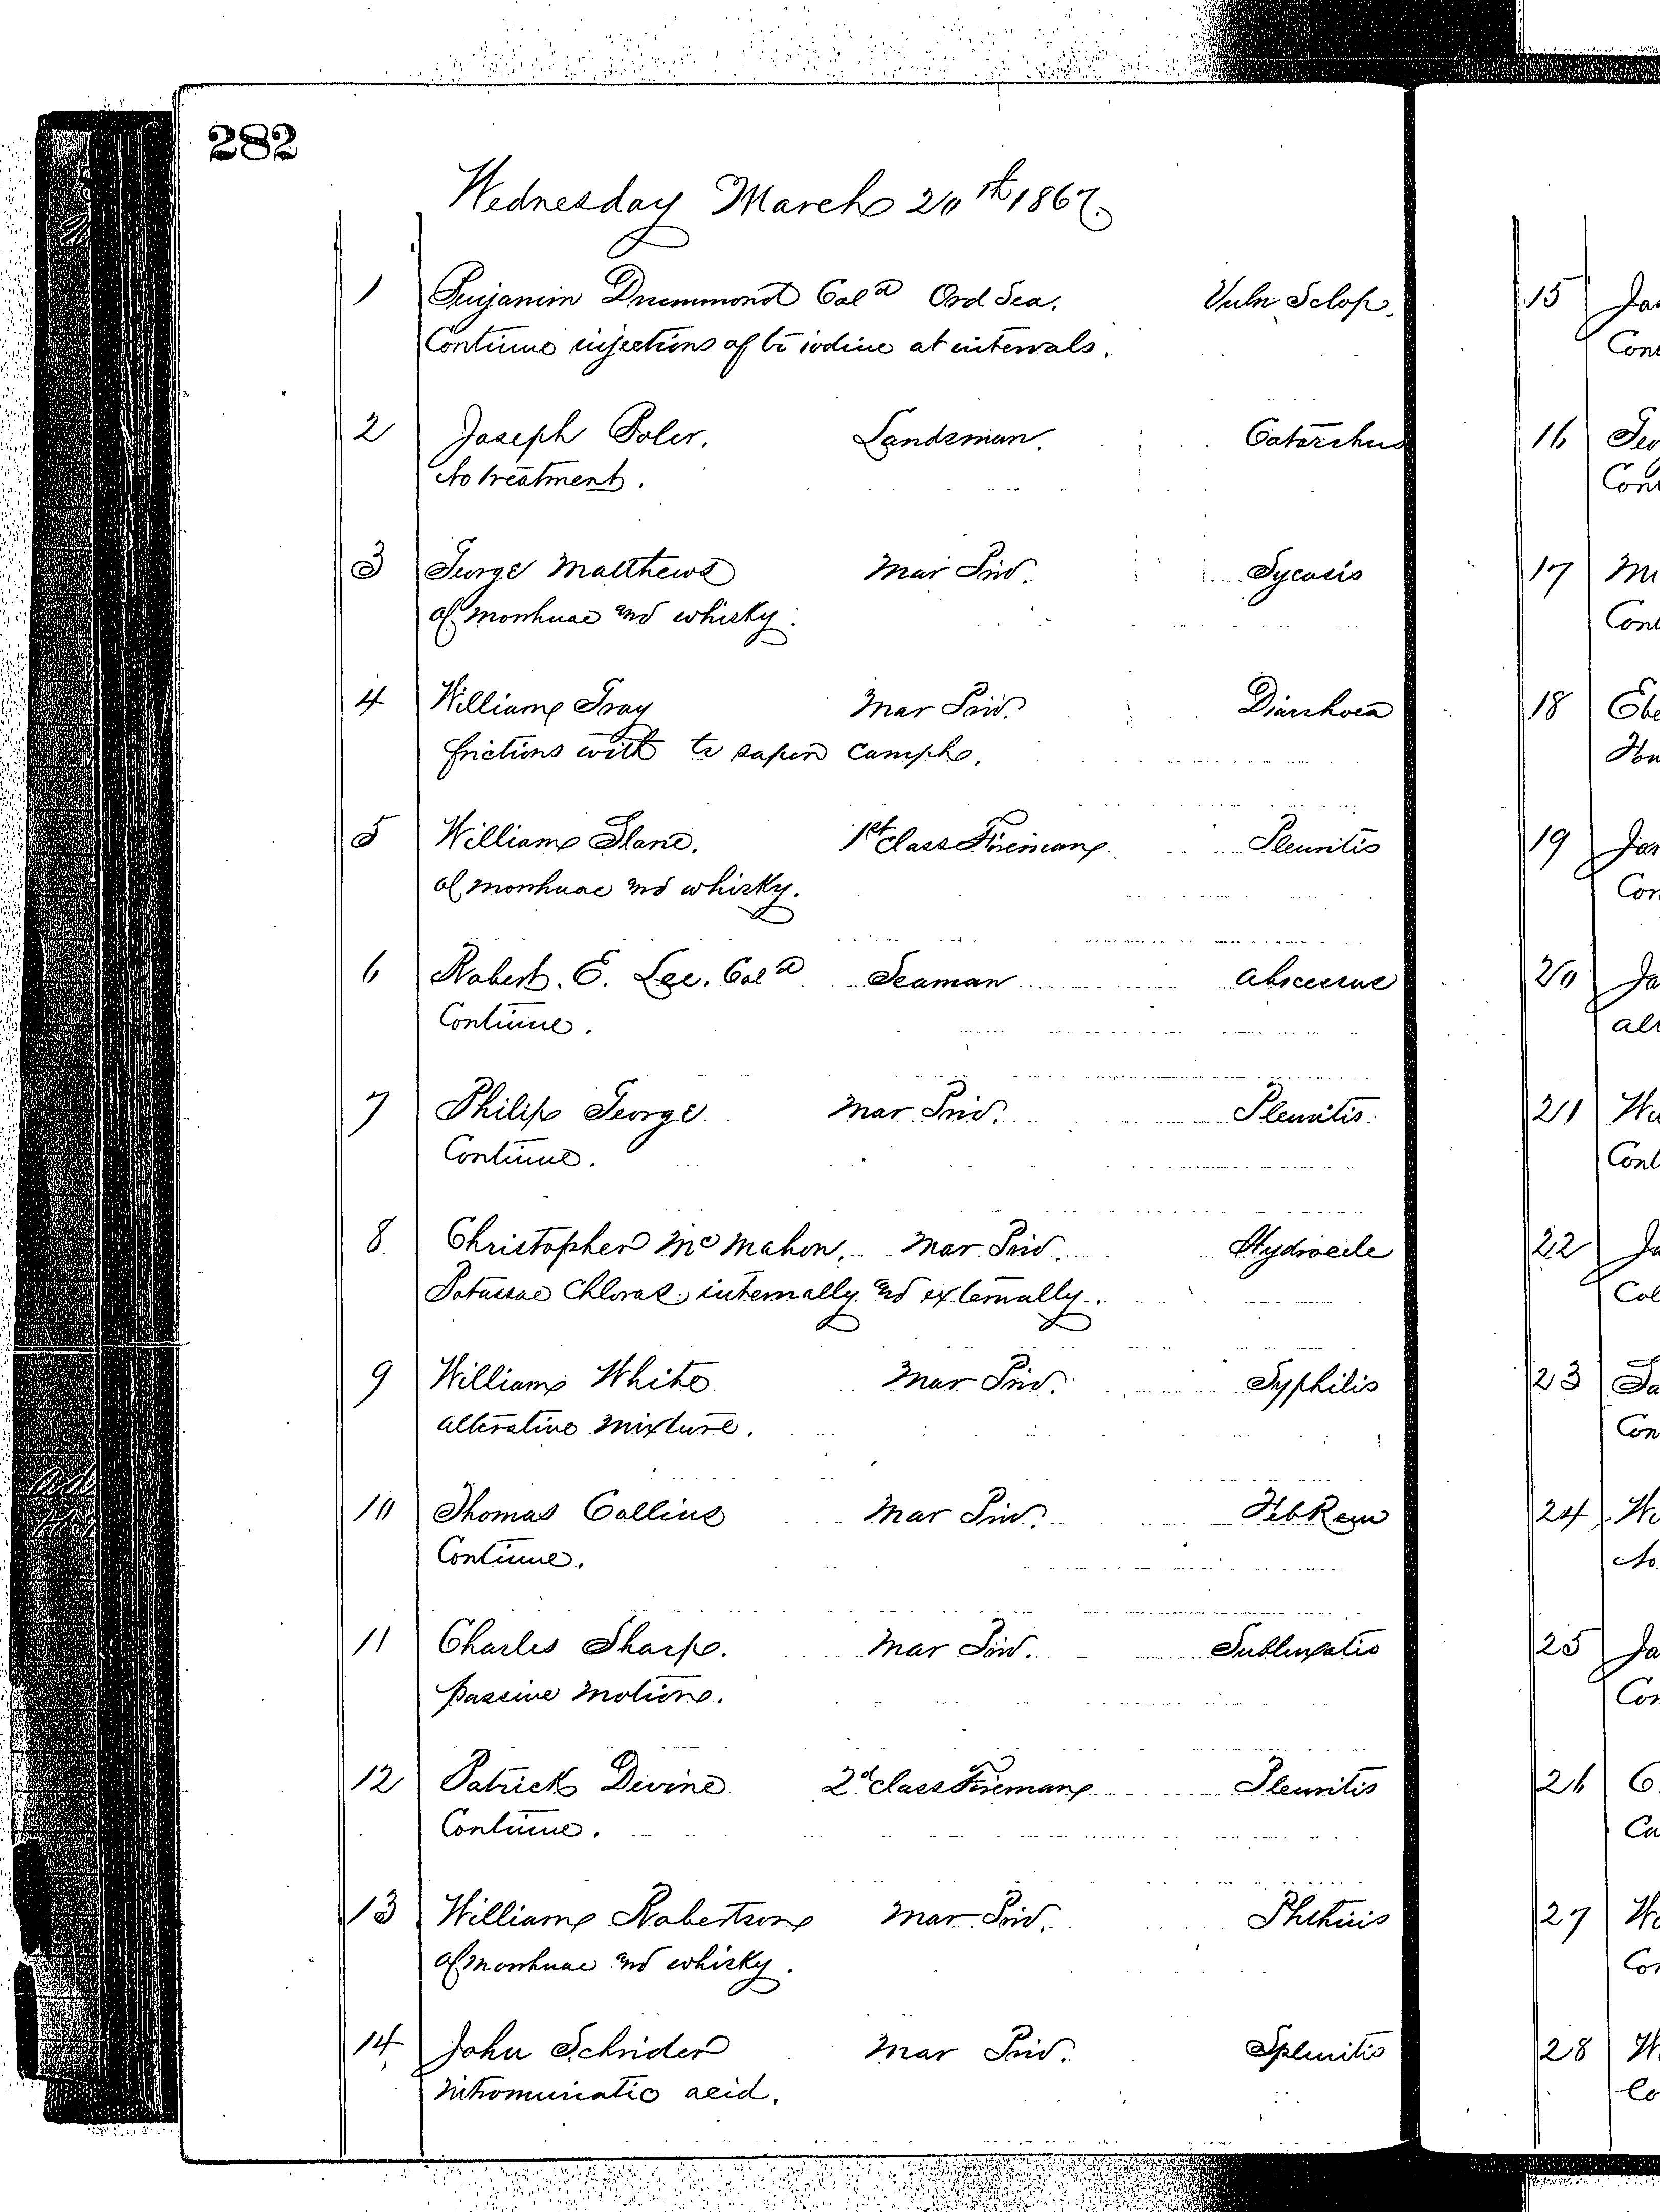 282
Wednesday March 20th 1867.
1 Benjamin Drummond Cold Ord Sea. Vuln Sclop.
Continue injections of tr iodine at intervals.
2 Joseph Poler. Landsman. Catarrhus
No treatment.
3 George Matthews Mar Priv. Sycosis
ol morrhuae and whisky.
4 William Gray Mar Priv. Diarrhoea
frictions with tr sapon camph.
5 William Slane. 1st class Fireman Pleuritis
ol morrhuae and whisky.
6 Robert. E. Lee. Cold Seaman Abscessus
Continue.
7 Philip George Mar Priv. Pleuritis.
Continue.
8. Christopher McMahon. Mar Priv. Hydrocele
Potassae Chloras internally and externally.
9 William White Mar Priv. Syphilis
alterative mixture.
10 Thomas Collins Mar Priv. Feb Rem
Continue.
11 Charles Sharp. Mar Priv. Subluxatio
passive motion.
12 Patrick Divine 2d class Fireman Pleuritis
Continue.
13 William Robertson Mar Priv. Phthisis
ol morrhuae and whisky.
14 John Schrider Mar Priv. Splenitis
nitromuriatic acid.
15
Con
16
17
18
19
20
21
22
23
24
25
26
27
28